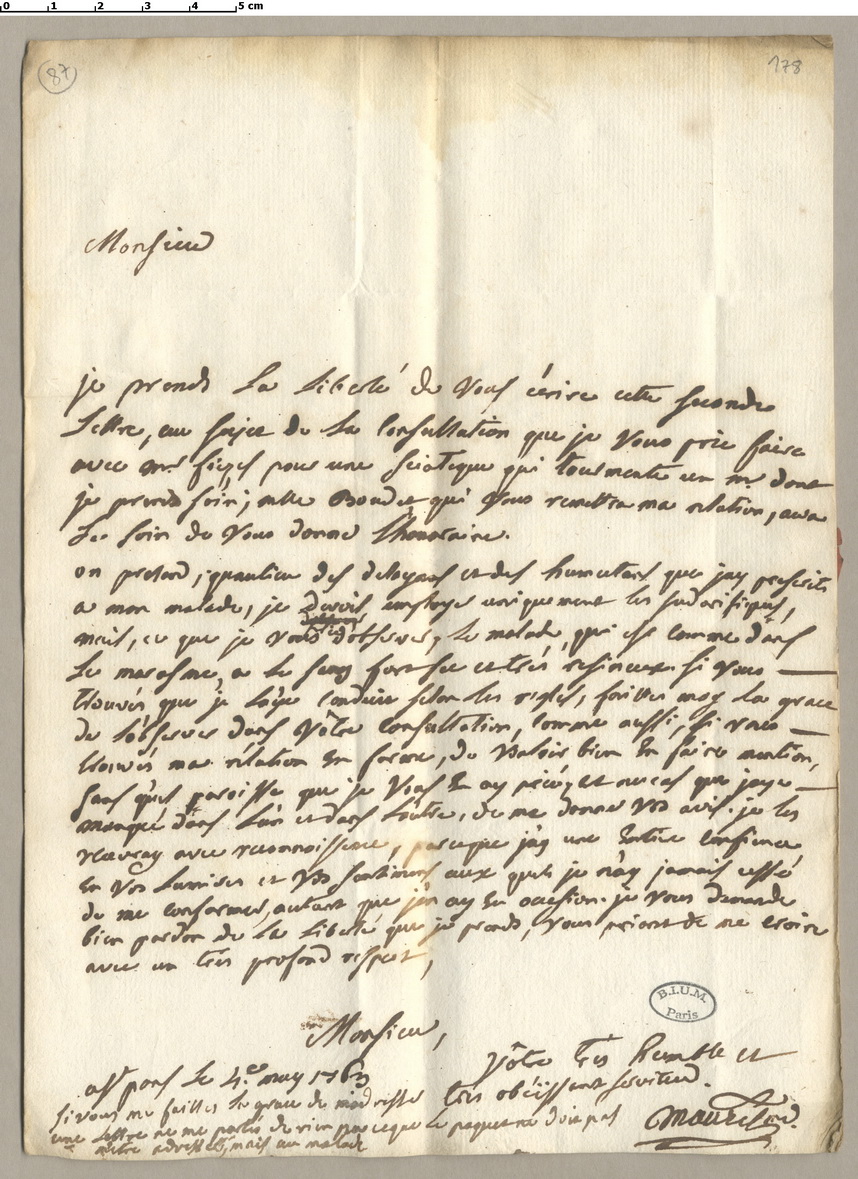 0 1 2 3 4 5 cm
87
178
Monsieur
je prends La Liberté de Vous écrire cette seconde
Lettre, au sujet de La Consultation que je Vous prie faire
avec mr fizes pour une sciatique qui tourmente un mr dont
je prends soin; mlle Boudet qui Vous remettra ma relation, aura
Le soin de Vous donner l'honoraire.
on pretend, qu'au lieu des delayans et des humectans que jay prescrits
a mon malade, je devois employer uniquement les sudorifiques,
mais, ce que je Vous d'observer, Le malade, qui est comme dans
Le marasme, a Le sang fort sec et très resineux. si vous
trouvés que je l'aye conduit selon les regles, faittes moy La grace
de l'observer dans Vôtre Consultation, comme aussi, si vous
trouvés ma relation En forme, de Vouloir bien En faire mention,
sans qu'il paroisse que je Vous En ay prié, et au cas que jaye
manqué dans L'un et dans L'autre, de me donner Vos avis. je les
recevray avec reconnoissance, parceque j'ay une Entiere Confiance
En Vos Lumieres et Vos sentimens aux quels je n'ay jamais cessé
de me conformer, autant que j'en ay Eu occasion. je Vous demande
bien pardon de La Liberté que je prends, Vous priant de me croire
avec un très profond respect,
Monsieur,
Vôtre très humble et
très obéissant serviteur.
Le 4.e may 1763
si vous me faittes La grace de m'adresser
une Lettre ne me parlés de rien parceque Le paquet ne doit pas
m'etre adressé, mais au malade
B.I.U.M.
Paris